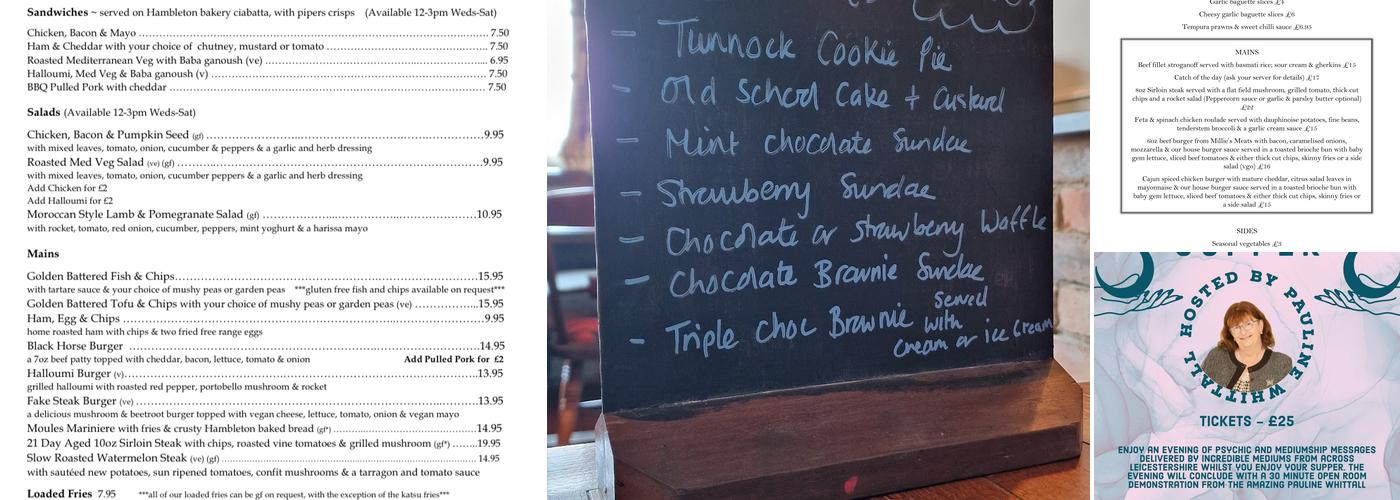 Sandwiches ~ served on Hambleton bakery ciabatta, with pipers crisps (Available 12-3pm Weds-Sat)
Chicken, Bacon & Mayo 7.50
Ham & Cheddar with your choice of chutney, mustard or tomato 7.50
Roasted Mediterranean Veg with Baba ganoush (ve) 6.95
Halloumi, Med Veg & Baba ganoush (v) 7.50
BBQ Pulled Pork with cheddar 7.50
Salads (Available 12-3pm Weds-Sat)
Chicken, Bacon & Pumpkin Seed (gf) 9.95
with mixed leaves, tomato, onion, cucumber & peppers & a garlic and herb dressing
Roasted Med Veg Salad (ve) (gf) 9.95
with mixed leaves, tomato, onion, cucumber peppers & a garlic and herb dressing
Add Chicken for £2
Add Halloumi for £2
Moroccan Style Lamb & Pomegranate Salad (gf) 10.95
with rocket, tomato, red onion, cucumber, peppers, mint yoghurt & a harissa mayo
Mains
Golden Battered Fish & Chips 15.95
with tartare sauce & your choice of mushy peas or garden peas ***gluten free fish and chips available on request***
Golden Battered Tofu & Chips with your choice of mushy peas or garden peas (ve) 15.95
Ham, Egg & Chips 9.95
home roasted ham with chips & two fried free range eggs
Black Horse Burger 14.95
a 7oz beef patty topped with cheddar, bacon, lettuce, tomato & onion Add Pulled Pork for £2
Halloumi Burger (v) 13.95
grilled halloumi with roasted red pepper, portobello mushroom & rocket
Fake Steak Burger (ve) 13.95
a delicious mushroom & beetroot burger topped with vegan cheese, lettuce, tomato, onion & vegan mayo
Moules Mariniere with fries & crusty Hambleton baked bread (gf*) 14.95
21 Day Aged 10oz Sirloin Steak with chips, roasted vine tomatoes & grilled mushroom (gf*) 19.95
Slow Roasted Watermelon Steak (ve) (gf) 14.95
with sautéed new potatoes, sun ripened tomatoes, confit mushrooms & a tarragon and tomato sauce
Loaded Fries 7.95 ***all of our loaded fries can be gf on request, with the exception of the katsu fries***
– Tunnock Cookie Pie
– Old School Cake + Custard
– Mint chocolate Sundae
– Strawberry Sundae
– Chocolate or strawberry Waffle
– Chocolate Brownie Sundae
– Triple choc Brownie served
with
cream or ice cream
Garlic baguette slices £4
Cheesy garlic baguette slices £6
Tempura prawns & sweet chilli sauce £6.95
MAINS
Beef fillet stroganoff served with basmati rice; sour cream & gherkins £15
Catch of the day (ask your server for details) £17
8oz Sirloin steak served with a flat field mushroom, grilled tomato, thick cut
chips and a rocket salad (Peppercorn sauce or garlic & parsley butter optional)
Feta & spinach chicken roulade served with dauphinoise potatoes, fine beans,
tenderstem broccoli & a garlic cream sauce £15
6oz beef burger from Millie's Meats with bacon, caramelised onions,
mozzarella & our house burger sauce served in a toasted brioche bun with baby
gem lettuce, sliced beef tomatoes & either thick cut chips, skinny fries or a side
salad (vgo) £16
Cajun spiced chicken burger with mature cheddar, citrus salad leaves in
mayonnaise & our house burger sauce served in a toasted brioche bun with
baby gem lettuce, sliced beef tomatoes & either thick cut chips, skinny fries or
a side salad £15
SIDES
Seasonal vegetables £3
SUPPER
HOSTED BY PAULINE WHITTALL
TICKETS - £25
ENJOY AN EVENING OF PSYCHIC AND MEDIUMSHIP MESSAGES
DELIVERED BY INCREDIBLE MEDIUMS FROM ACROSS
LEICESTERSHIRE WHILST YOU ENJOY YOUR SUPPER. THE
EVENING WILL CONCLUDE WITH A 30 MINUTE OPEN ROOM
DEMONSTRATION FROM THE AMAZING PAULINE WHITTALL